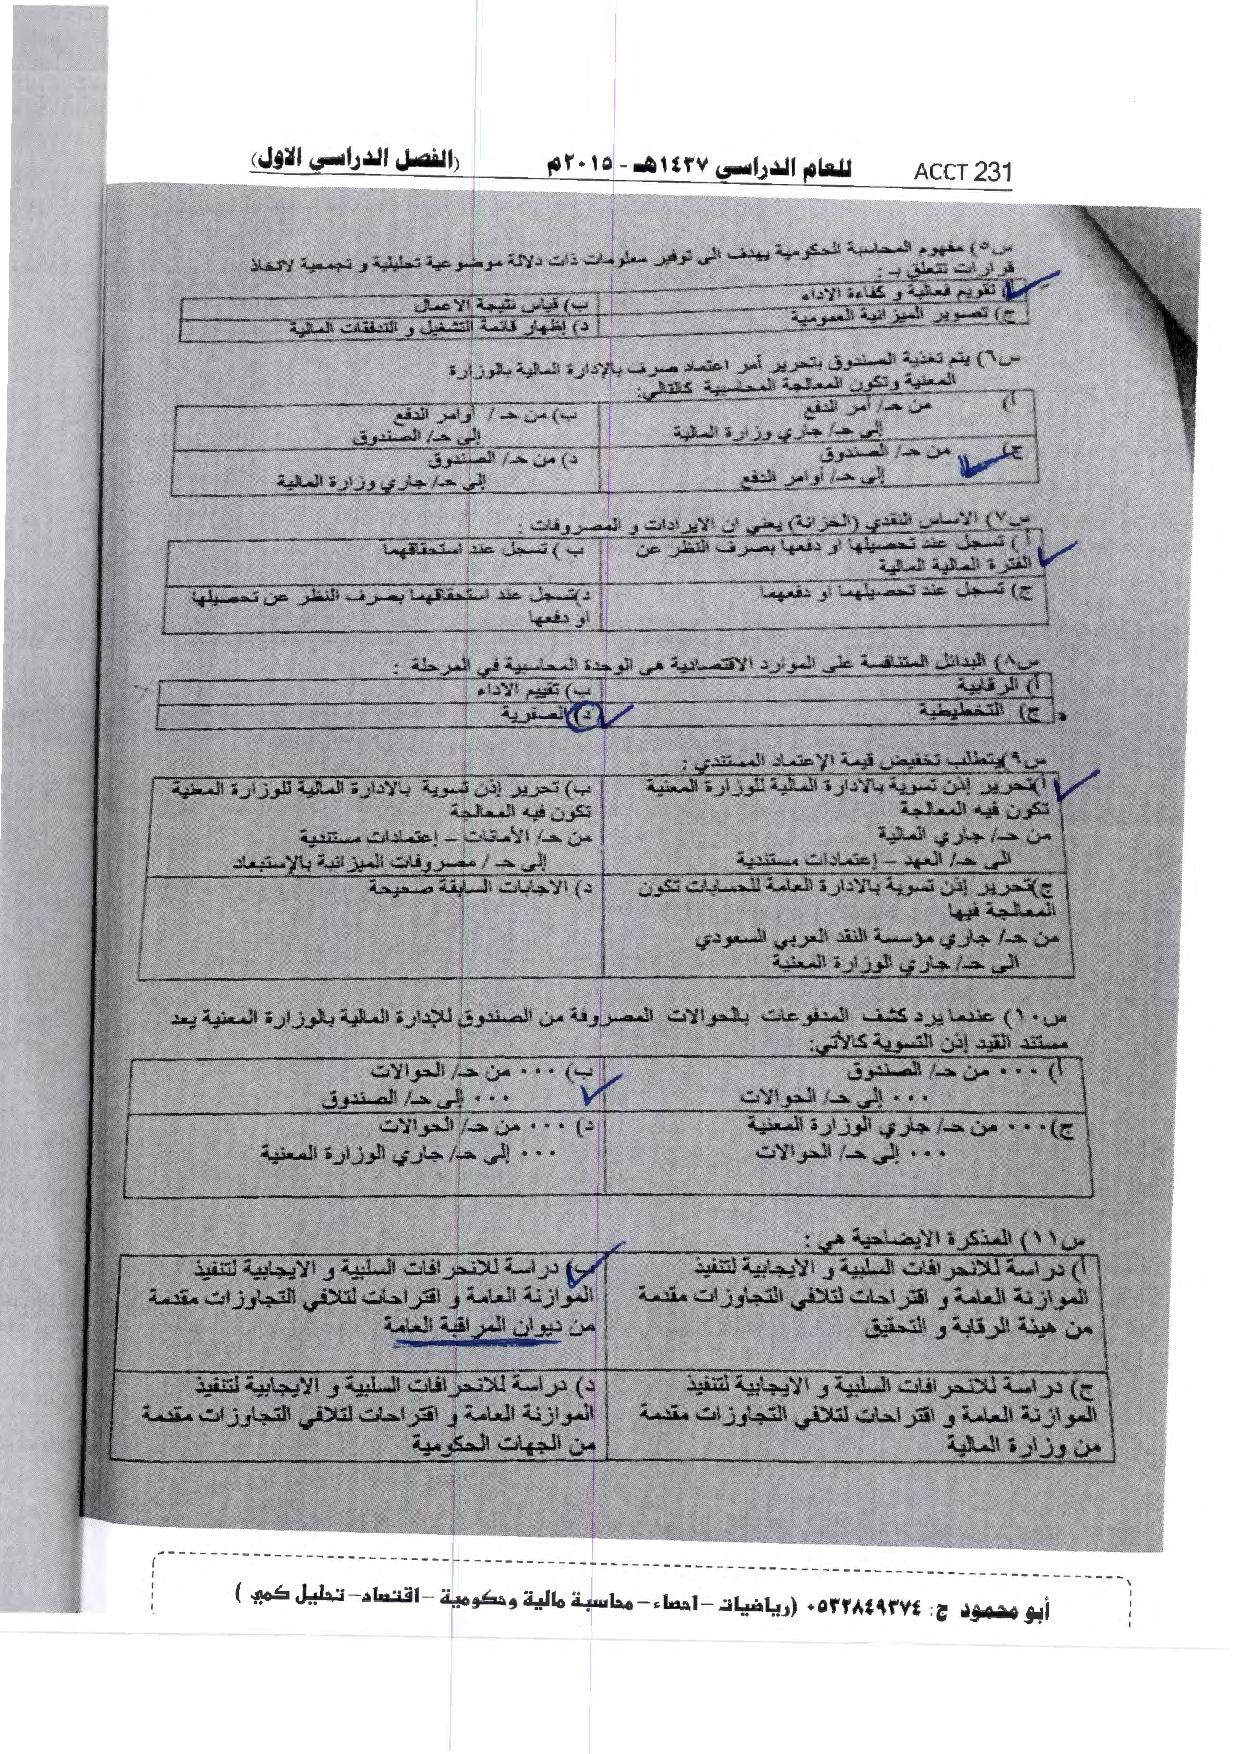 ACCT 231 للعام الدراسي ١٤٣٧هـ - ٢٠١٥م (الفصل الدراسي الاول)
س٥) مفهوم المحاسبة الحكومية يهدف الى توفير معلومات ذات دلالة موضوعية تحليلية و تجمعية لاتخاذ
قرارات تتعلق بـ :
أ) تقويم فعالية و كفاءة الاداء
ب) قياس نتيجة الاعمال
ج) تصوير الميزانية العمومية
د) إظهار قائمة التشغيل و التدفقات المالية
س٦) يتم تغذية الصندوق بتحرير أمر اعتماد صرف بالإدارة المالية بالوزارة
المعنية وتكون المعالجة المحاسبية كالتالي:
أ) من حـ/ أمر الدفع
إلى حـ/ جاري وزارة المالية
ب) من حـ/ أوامر الدفع
إلى حـ/ الصندوق
ج) من حـ/ الصندوق
إلى حـ/ أوامر الدفع
د) من حـ/ الصندوق
إلى حـ/ جاري وزارة المالية
س٧) الاساس النقدي (الخزانة) يعني ان الايرادات و المصروفات :
أ) تسجل عند تحصيلها او دفعها بصرف النظر عن
الفترة المالية المالية
ب) تسجل عند استحقاقهما
ج) تسجل عند تحصيلهما او دفعهما
د) تسجل عند استحقاقهما بصرف النظر عن تحصيلها
او دفعها
س٨) البدائل المتنافسة على الموارد الاقتصادية هى الوحدة المحاسبية في المرحلة :
أ) الرقابية
ب) تقييم الاداء
ج) التخطيطية
د) الصفرية
س٩) يتطلب تخفيض قيمة الإعتماد المستندي :
أ) تحرير إذن تسوية بالادارة المالية للوزارة المعنية
تكون فيه المعالجة
من حـ/ جاري المالية
الى حـ/ العهد – إعتمادات مستندية
ب) تحرير إذن تسوية بالادارة المالية للوزارة المعنية
تكون فيه المعالجة
من حـ/ الأمانات – إعتمادات مستندية
إلى حـ / مصروفات الميزانية بالإستبعاد
ج) تحرير إذن تسوية بالادارة العامة للحسابات تكون
المعالجة فيها
من حـ/ جاري مؤسسة النقد العربي السعودي
الى حـ/ جاري الوزارة المعنية
د) الاجابات السابقة صحيحة
س١٠) عندما يرد كشف المدفوعات بالحوالات المصروفة من الصندوق للإدارة المالية بالوزارة المعنية يعد
مستند القيد إذن التسوية كالأتي:
أ) ٠٠٠ من حـ/ الصندوق
٠٠٠ إلى حـ/ الحوالات
ب) ٠٠٠ من حـ/ الحوالات
٠٠٠ إلى حـ/ الصندوق
ج) ٠٠٠ من حـ/ جاري الوزارة المعنية
٠٠٠ إلى حـ/ الحوالات
د) ٠٠٠ من حـ/ الحوالات
٠٠٠ إلى حـ/ جاري الوزارة المعنية
س١١) المذكرة الايضاحية هي :
أ) دراسة للانحرافات السلبية و الايجابية لتنفيذ
الموازنة العامة و اقتراحات لتلافي التجاوزات مقدمة
من هيئة الرقابة و التحقيق
ب) دراسة للانحرافات السلبية و الايجابية لتنفيذ
الموازنة العامة و اقتراحات لتلافي التجاوزات مقدمة
من ديوان المراقبة العامة
ج) دراسة للانحرافات السلبية و الايجابية لتنفيذ
الموازنة العامة و اقتراحات لتلافي التجاوزات مقدمة
من وزارة المالية
د) دراسة للانحرافات السلبية و الايجابية لتنفيذ
الموازنة العامة و اقتراحات لتلافي التجاوزات مقدمة
من الجهات الحكومية
أبو محمود ج: ٠٥٣٢٨٤٩٣٧٤ (رياضيات – احصاء – محاسبة مالية وحكومية – اقتصاد – تحليل كمي )